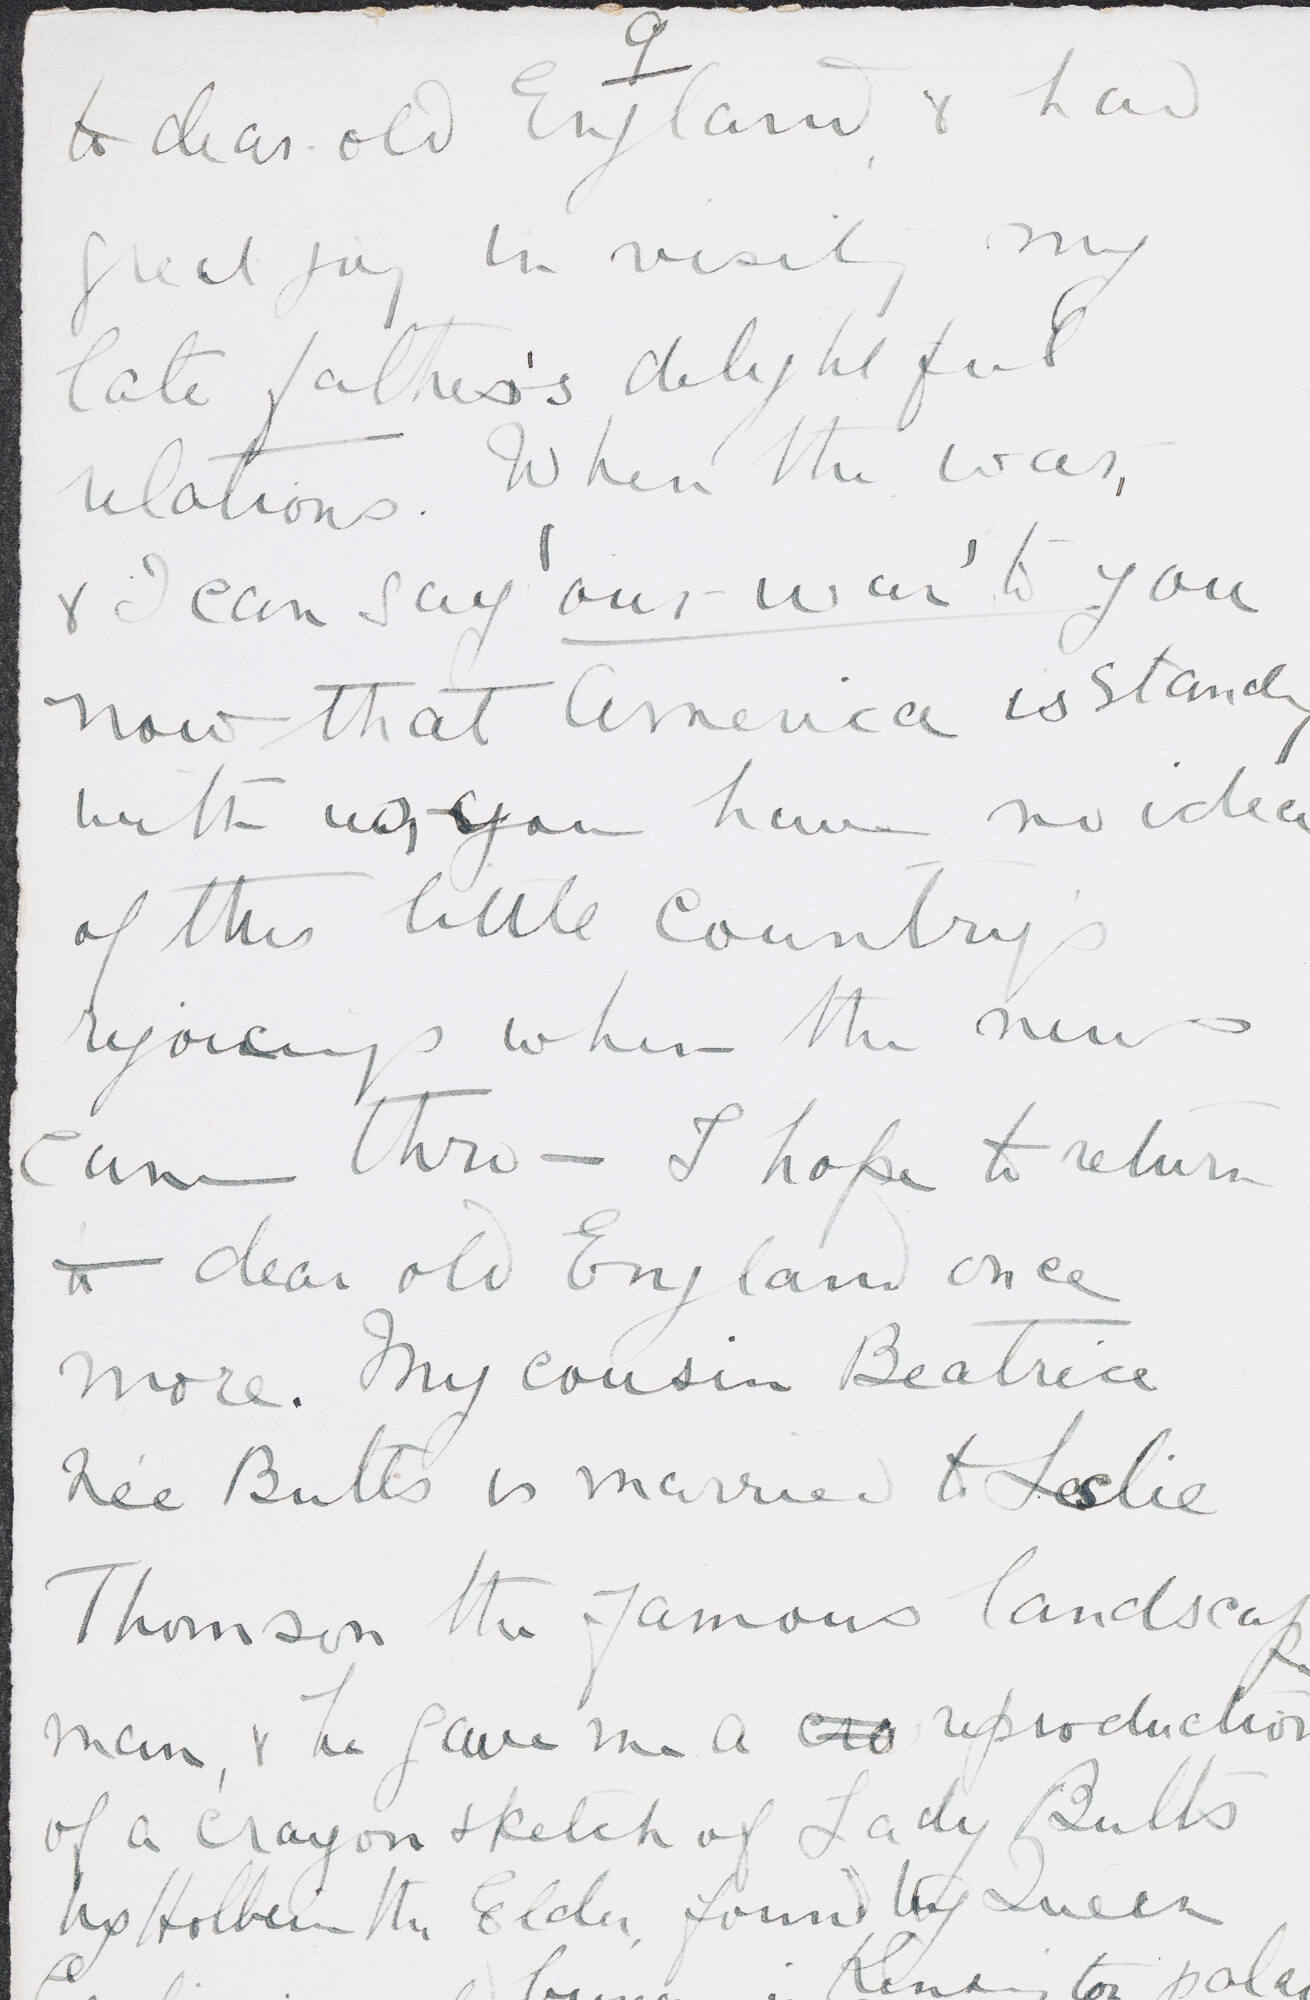 9
to dear old England, & had
great joy in visiting my
late father's delightful
relations. When the war,
& I can say 'our war' to you
now that America is standg
with us, you have no idea
of this little country's
rejoicings when the news
came thro — I hope to return
to dear old England once
more. My cousin Beatrice
Née Butts is married to Leslie
Thomson the famous landscap
man, & he gave me a cra reproduction
of a crayon sketch of Lady Butts
by Holbein the Elder, found by Queen
Kensington palac